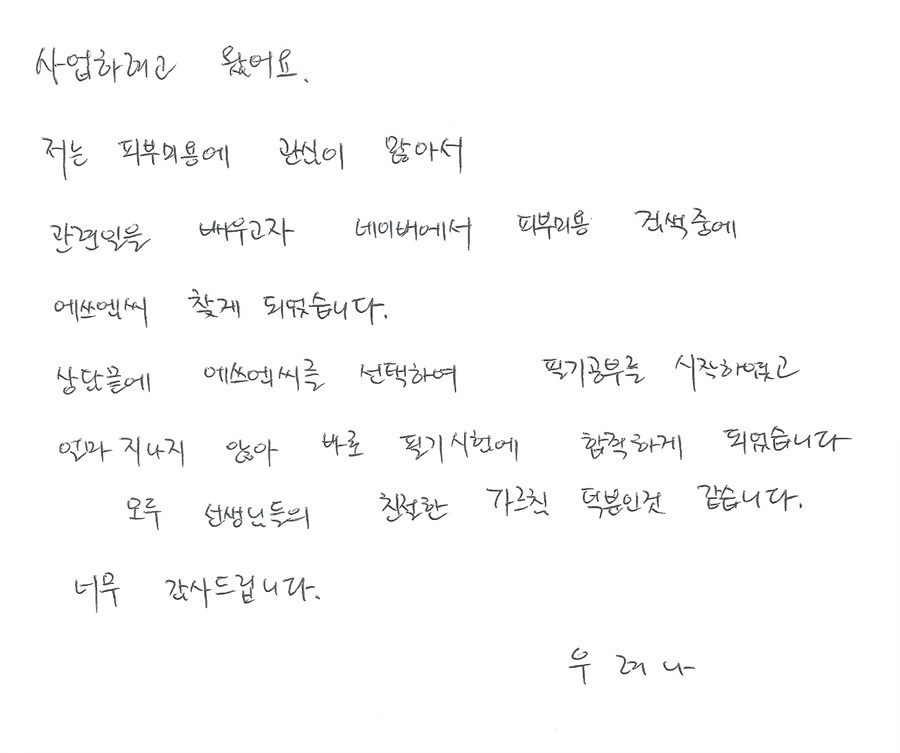 사업하려고 왔어요.
저는 피부미용에 관심이 많아서
관련일을 배우고자 네이버에서 피부미용 검색중에
에쓰엔씨 찾게 되었습니다.
상단끝에 에쓰엔씨를 선택하여 필기공부를 시작하였고
얼마 지나지 않아 바로 필기시험에 합격하게 되었습니다
모두 선생님들의 친절한 가르침 덕분인것 같습니다.
너무 감사드립니다.
우 려 나